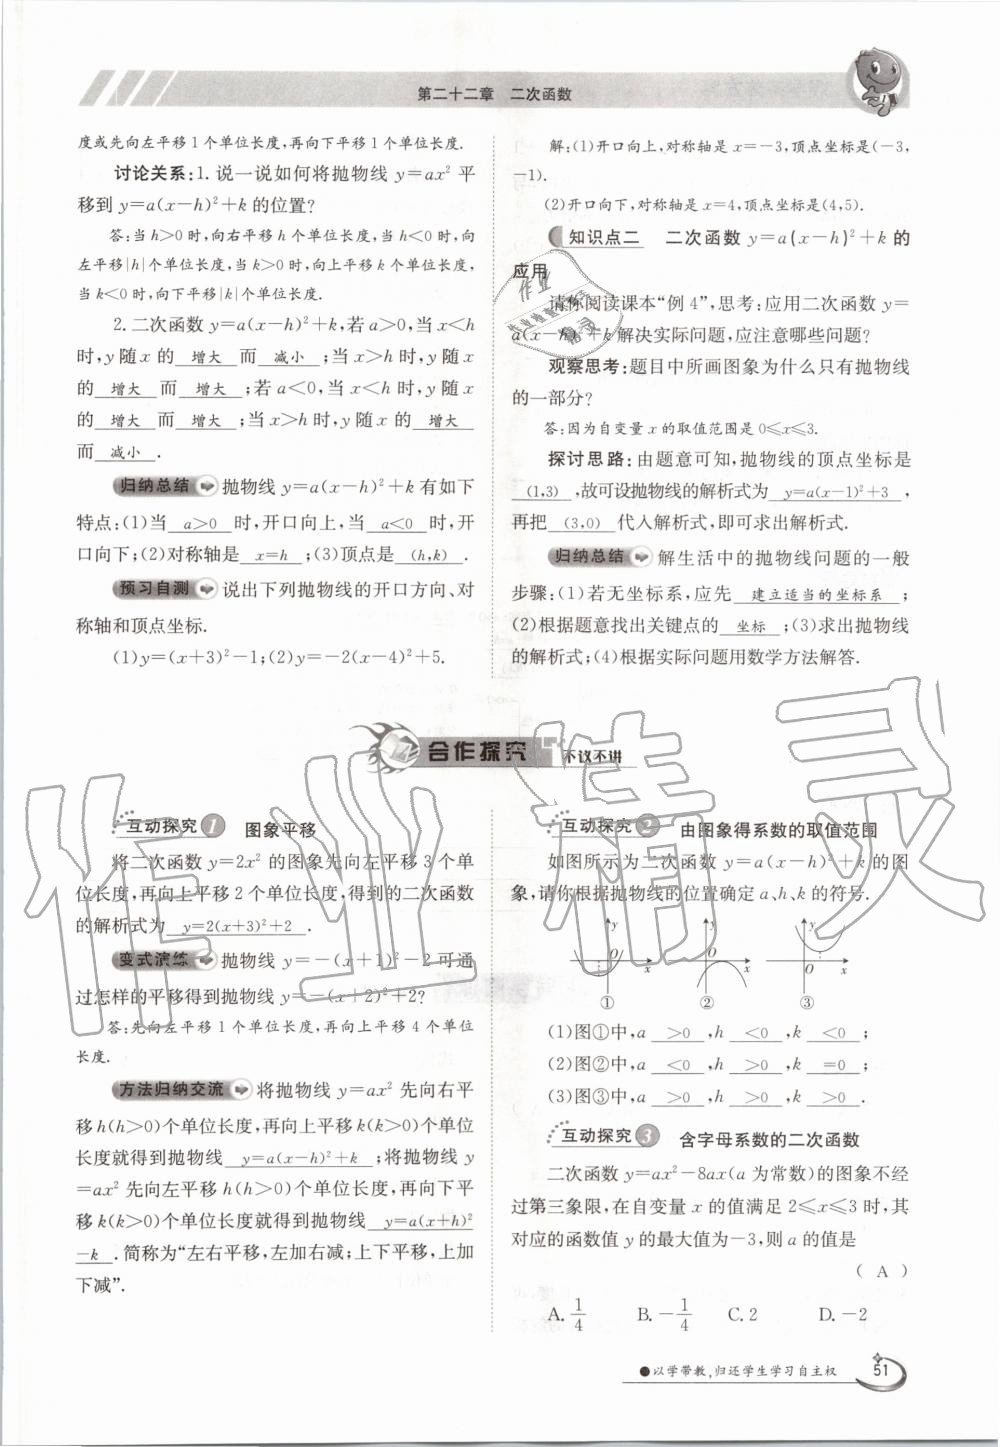 第二十二章　二次函数
度或先向左平移1个单位长度,再向下平移1个单位长度.
讨论关系:1. 说一说如何将抛物线 y=ax² 平
移到 y=a(x-h)²+k 的位置?
答:当 h>0 时,向右平移 h 个单位长度,当 h<0 时,向
左平移|h|个单位长度,当 k>0 时,向上平移 k 个单位长度,
当 k<0 时,向下平移|k|个单位长度.
2. 二次函数 y=a(x-h)²+k,若 a>0,当 x<h
时,y 随 x 的 增大 而 减小 ;当 x>h 时,y 随 x
的 增大 而 增大 ;若 a<0,当 x<h 时,y 随 x
的 增大 而 增大 ;当 x>h 时,y 随 x 的 增大
而 减小 .
归纳总结 抛物线 y=a(x-h)²+k 有如下
特点:(1)当 a>0 时,开口向上,当 a<0 时,开
口向下;(2)对称轴是 x=h ;(3)顶点是 (h,k) .
预习自测 说出下列抛物线的开口方向、对
称轴和顶点坐标.
(1)y=(x+3)²-1;(2)y=-2(x-4)²+5.
解:(1)开口向上,对称轴是 x=-3,顶点坐标是(-3,
-1).
(2)开口向下,对称轴是 x=4,顶点坐标是(4,5).
知识点二　二次函数 y=a(x-h)²+k 的
应用
请你阅读课本“例 4”,思考:应用二次函数 y=
a(x-h)²+k 解决实际问题,应注意哪些问题?
观察思考:题目中所画图象为什么只有抛物线
的一部分?
答:因为自变量 x 的取值范围是 0≤x≤3.
探讨思路:由题意可知,抛物线的顶点坐标是
(1,3) ,故可设抛物线的解析式为 y=a(x-1)²+3 ,
再把 (3,0) 代入解析式,即可求出解析式.
归纳总结 解生活中的抛物线问题的一般
步骤:(1)若无坐标系,应先 建立适当的坐标系 ;
(2)根据题意找出关键点的 坐标 ;(3)求出抛物线
的解析式;(4)根据实际问题用数学方法解答.
合作探究 不议不讲
互动探究 1　图象平移
将二次函数 y=2x² 的图象先向左平移 3 个单
位长度,再向上平移 2 个单位长度,得到的二次函数
的解析式为 y=2(x+3)²+2 .
变式演练 抛物线 y=-(x+1)²-2 可通
过怎样的平移得到抛物线 y=-(x+2)²+2?
答:先向左平移 1 个单位长度,再向上平移 4 个单位
长度.
方法归纳交流 将抛物线 y=ax² 先向右平
移 h(h>0)个单位长度,再向上平移 k(k>0)个单位
长度就得到抛物线 y=a(x-h)²+k ;将抛物线 y
=ax² 先向左平移 h(h>0)个单位长度,再向下平
移 k(k>0)个单位长度就得到抛物线 y=a(x+h)²
-k .简称为“左右平移,左加右减;上下平移,上加
下减”.
互动探究 2　由图象得系数的取值范围
如图所示为二次函数 y=a(x-h)²+k 的图
象,请你根据抛物线的位置确定 a、h、k 的符号.
y y y
O O O
x x x
① ② ③
(1)图①中,a >0 ,h <0 ,k <0 ;
(2)图②中,a <0 ,h >0 ,k =0 ;
(3)图③中,a >0 ,h >0 ,k >0 .
互动探究 3　含字母系数的二次函数
二次函数 y=ax²-8ax(a 为常数)的图象不经
过第三象限,在自变量 x 的值满足 2≤x≤3 时,其
对应的函数值 y 的最大值为-3,则 a 的值是
( A )
A. 1/4　B. -1/4　C. 2　D. -2
●以学带教,归还学生学习自主权
51
作业精灵